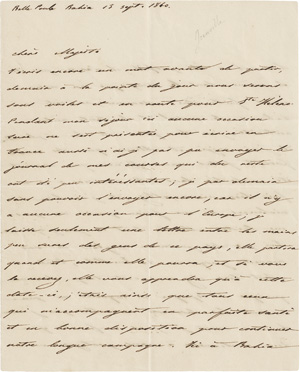 Belle Poule Bahia 15 sept. 1840.
chère Majesté
J'écris encore un mot avant de partir,
demain à la pointe du jour nous serons
sous voiles et en route pour Ste Hélène
Pendant mon séjour ici aucune occasion
ne s'est présentée pour écrire en
france aussi n'ai je pas pu envoyer le
journal de mes courses qui du reste
ont été peu intéressantes; je pars demain
sans pouvoir l'envoyer encore, car il n'y
a aucune occasion pour l'Europe, je
laisse seulement une lettre entre les mains
des gens de ce pays; elle partira
quand et comme elle pourra, et si vous
la recevez, elle vous apprendra qu'à cette
date-ci, j'étais ainsi que tous ceux
qui m'accompagnent en parfaite santé
et en bonne disposition pour continuer
notre longue campagne. Ici à Bahia